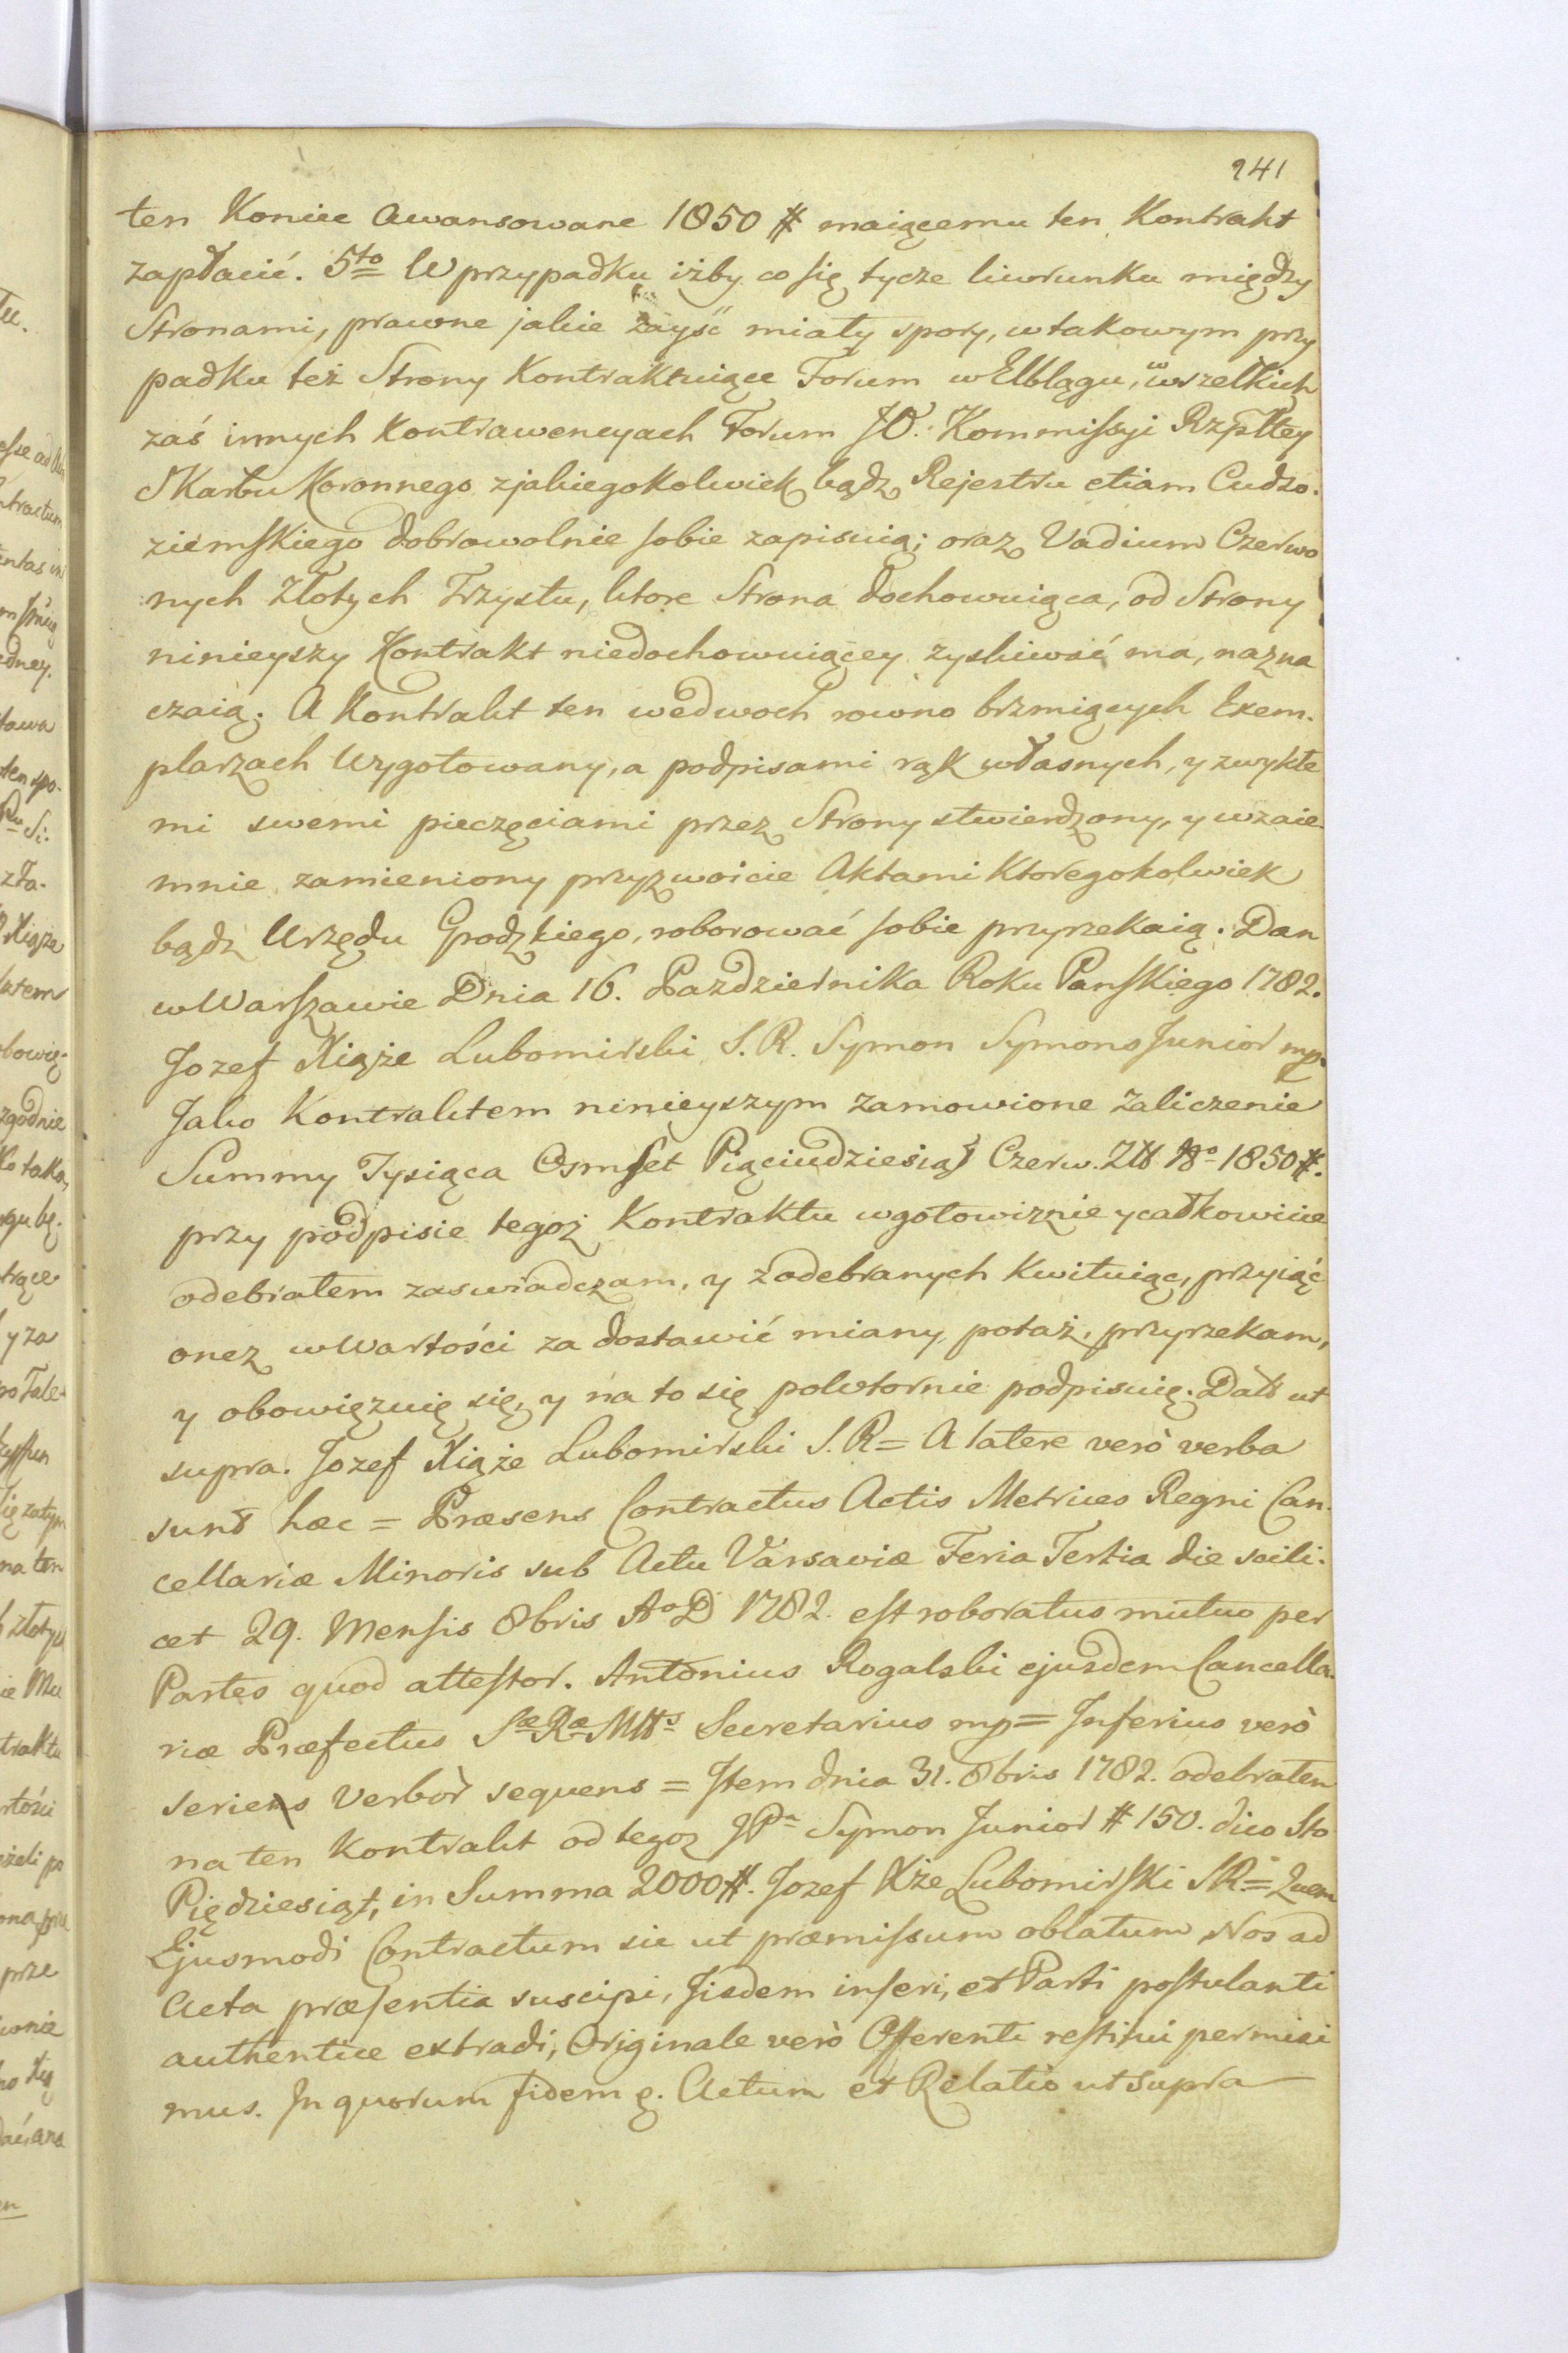 241
ten Koniec awansowane 1850 # maiącemu ten Kontrakt
zapłacić. 5to W przypadku iżby co się tycze liwrunku między
Stronami, prawne jakie zayść miały spory, w takowym przy
padku też Strony Kontraktuiące Forum w Elblągu, w wszelkich
zaś innych Kontrawencyach Forum JO. Kommissyi Rzpltey
Skarbu Koronnego z jakiegokolwiek bądz Rejestru etiam Cudzo-
ziemskiego dobrowolnie sobie zapisuią; oraz Vadium Czerwo
nych Złotych Trzystu, ktore Strona dochowuiąca, od Strony
ninieyszy Kontrakt niedochowuiącey zyskiwać ma, nazna
czaią. A Kontrakt ten wedwoch rowno brzmiących Exem-
plarzach Wygotowany, a podpisami rąk własnych, y zwykłe
mi swemi pieczęciami przez Strony stwierdzony, y wzaie
mnie zamieniony przyzwoicie Aktami Ktoregokolwiek
bądz Urzędu Grodzkiego, roborować sobie przyrzekaią. Dan
w Warszawie Dnia 16. Pazdziernika Roku Panskiego 1782.
Jozef Xiąże Lubomirski S. R. Symon Symons Junior mp.
Jako Kontraktem ninieyszym zamowione zaliczenie
Summy Tysiąca Osmset Pięciudziesiąt Czerw. Złł No 1850 #.
przy podpisie tegoż Kontraktu w gotowiznie y całkowicie
odebrałem zaswiadczam, y z odebranych Kwituiąc, przyiąć
onez w Wartości za dostawić miany potaż, przyrzekam,
y obowięzuię się, y na to się powtornie podpisuię. Datt ut
supra. Jozef Xiąże Lubomirski S. R = A latere verò verba
sunt hæc = Præsens Contractus Actis Metrices Regni Can-
cellariæ Minoris sub Actu Varsaviæ Feria Tertia die scili-
cet 29. Mensis 8bris Ao D 1782. est roboratus mutuo per
Partes quod attestor. Antonius Rogalski ejusdem Cancella-
riæ Præfectus Sæ Ræ Mtts Secretarius mp = Inferius verò
seriens Verbor sequens = Item dnia 31. 8bris 1782. odebrałem
na ten Kontrakt od tegoz JPa Symon Junior # 150. dico Sto
Pięćdziesiąt, in Summa 2000 #. Jozef Xże Lubomirski SR = Quem
Ejusmodi Contractum sic ut præmissum oblatum Nos ad
Acta præsentia suscipi, Iisdem inseri, et Parti postulanti
authentice extradi, Originale verò Offerenti restitui permisi
mus. In quorum fidem &. Actum et Relatio ut supra